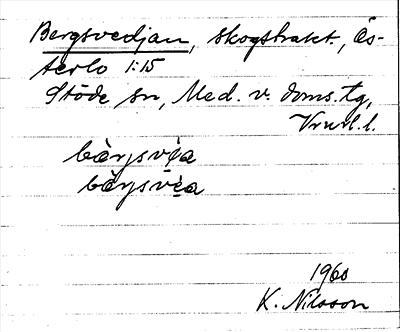 Bergsvedjan, skogstrakt., Ös-
terlo 1:15
Stöde sn, Med. v. doms. tg,
l.
bàrjsvḛ̄a
bàrjsvḛ̄a
1960
K. Nilsson